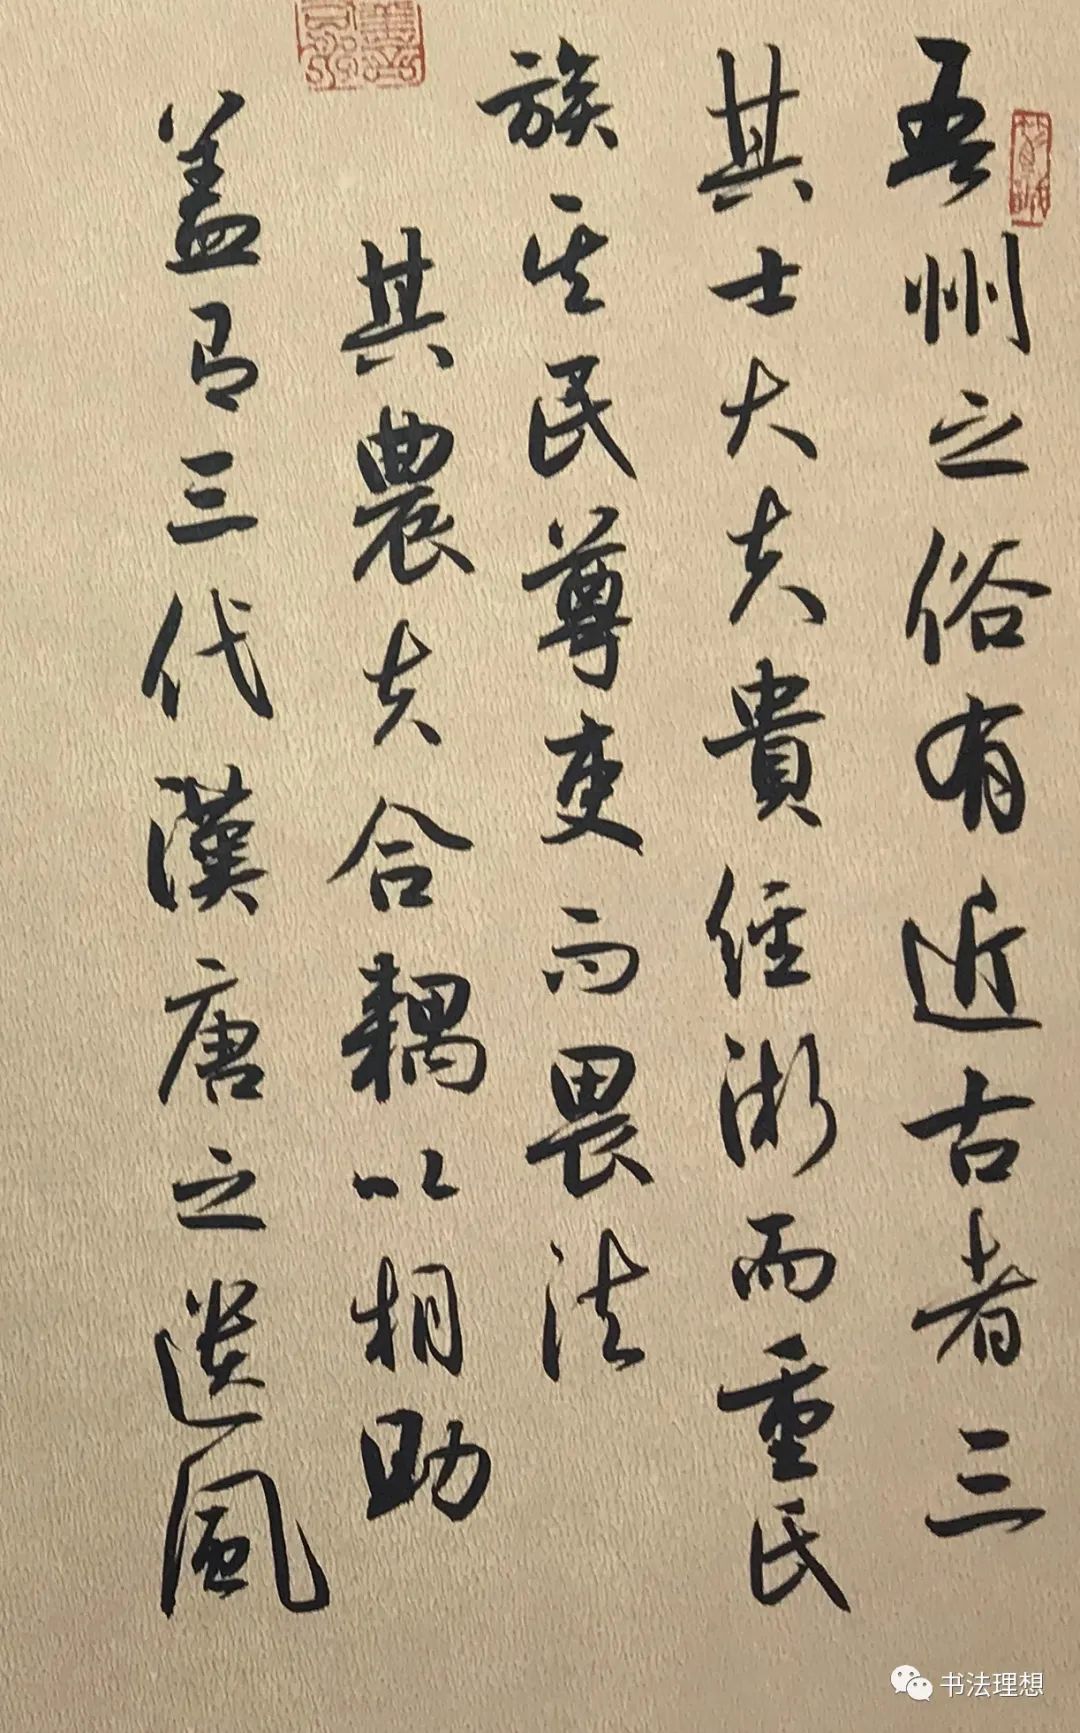 吾州之俗有近古者三
其士大夫貴経術而重氏
族其民尊吏而畏法
其農夫合耦以相助
盖有三代漢唐之遺風
书法理想